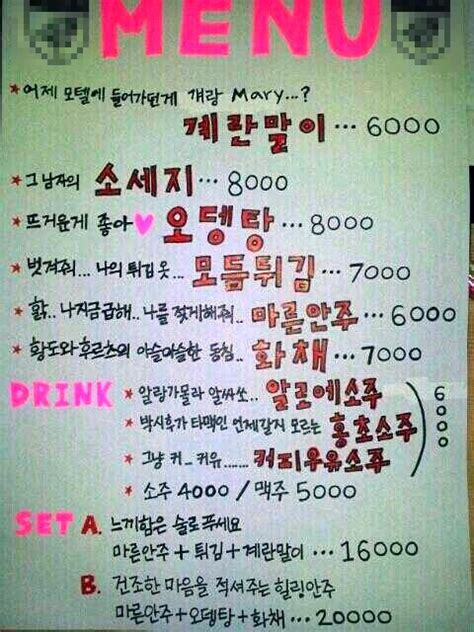 MENU
* 어제 모텔에 들어가던게 걔랑 Mary...?
계란말이 ... 6000
* 그남자의 소세지 ... 8000
* 뜨거운게 좋아♥ 오뎅탕 ... 8000
* 벗겨줘... 나의 튀김옷... 모듬튀김 ... 7000
* 핡.. 나지금급해.. 나를 젖게해줘.. 마른안주 ... 6000
* 황도와후르츠의 아슬아슬한 동침.. 화채 ... 7000
DRINK * 알랑가몰라 알싸쏘.. 알로에소주
* 박시후가 타맥인 언제갈지 모르는 홍초소주 6000
* 그냥 커_커유...... 커피우유소주
* 소주 4000 / 맥주 5000
SET A. 느끼함은 슬로푹세요
마른안주 + 튀김 + 계란말이 ... 16000
B. 건조한 마음을 적셔주는 힐링안주
마른안주 + 오뎅탕 + 화채 ... 20000